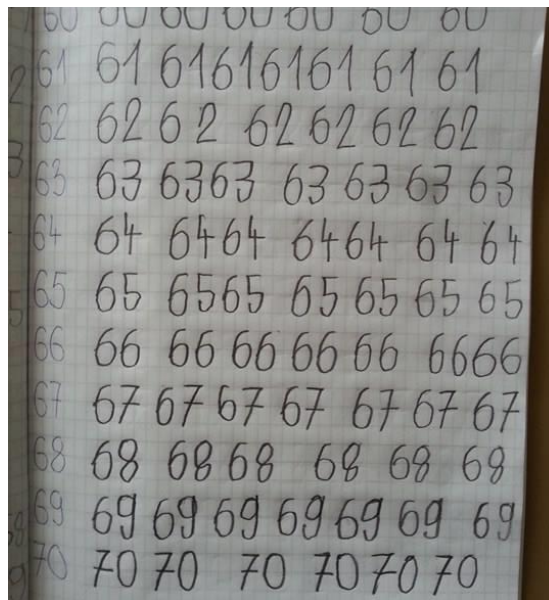 60 60 60 60 60 60 60
61 61 61616161 61 61
62 62 62 62 62 62 62
63 63 6363 63 63 63 63
64 64 6464 6464 64 64
65 65 6565 65 65 65 65
66 66 66 66 66 66 6666
67 67 67 67 67 67 67 67
68 68 68 68 68 68 68
69 69 69 69 69 69 69 69
70 70 70 70 70 70 70